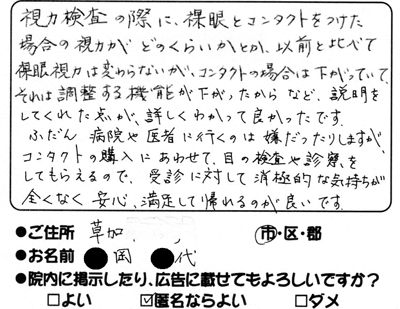 視力検査の際に、裸眼とコンタクトをつけた
場合の視力が どのくらいかとか、以前と比べて
裸眼視力は変わらないが、コンタクトの場合は下がっていて、
それは調整する機能が下がったから など、説明を
してくれた点が、詳しくわかって良かったです。
ふだん 病院や医者に行くのは 嫌だったりしますが、
コンタクトの購入にあわせて、目の検査や診察を
してもらえるので、受診に対して 消極的な気持ちが
全くなく 安心、満足して帰れるのが良いです。
●ご住所 草加 市・区・郡
●お名前 ●岡 ●代
●院内に掲示したり、広告に載せてもよろしいですか?
□よい ☑匿名ならよい □ダメ